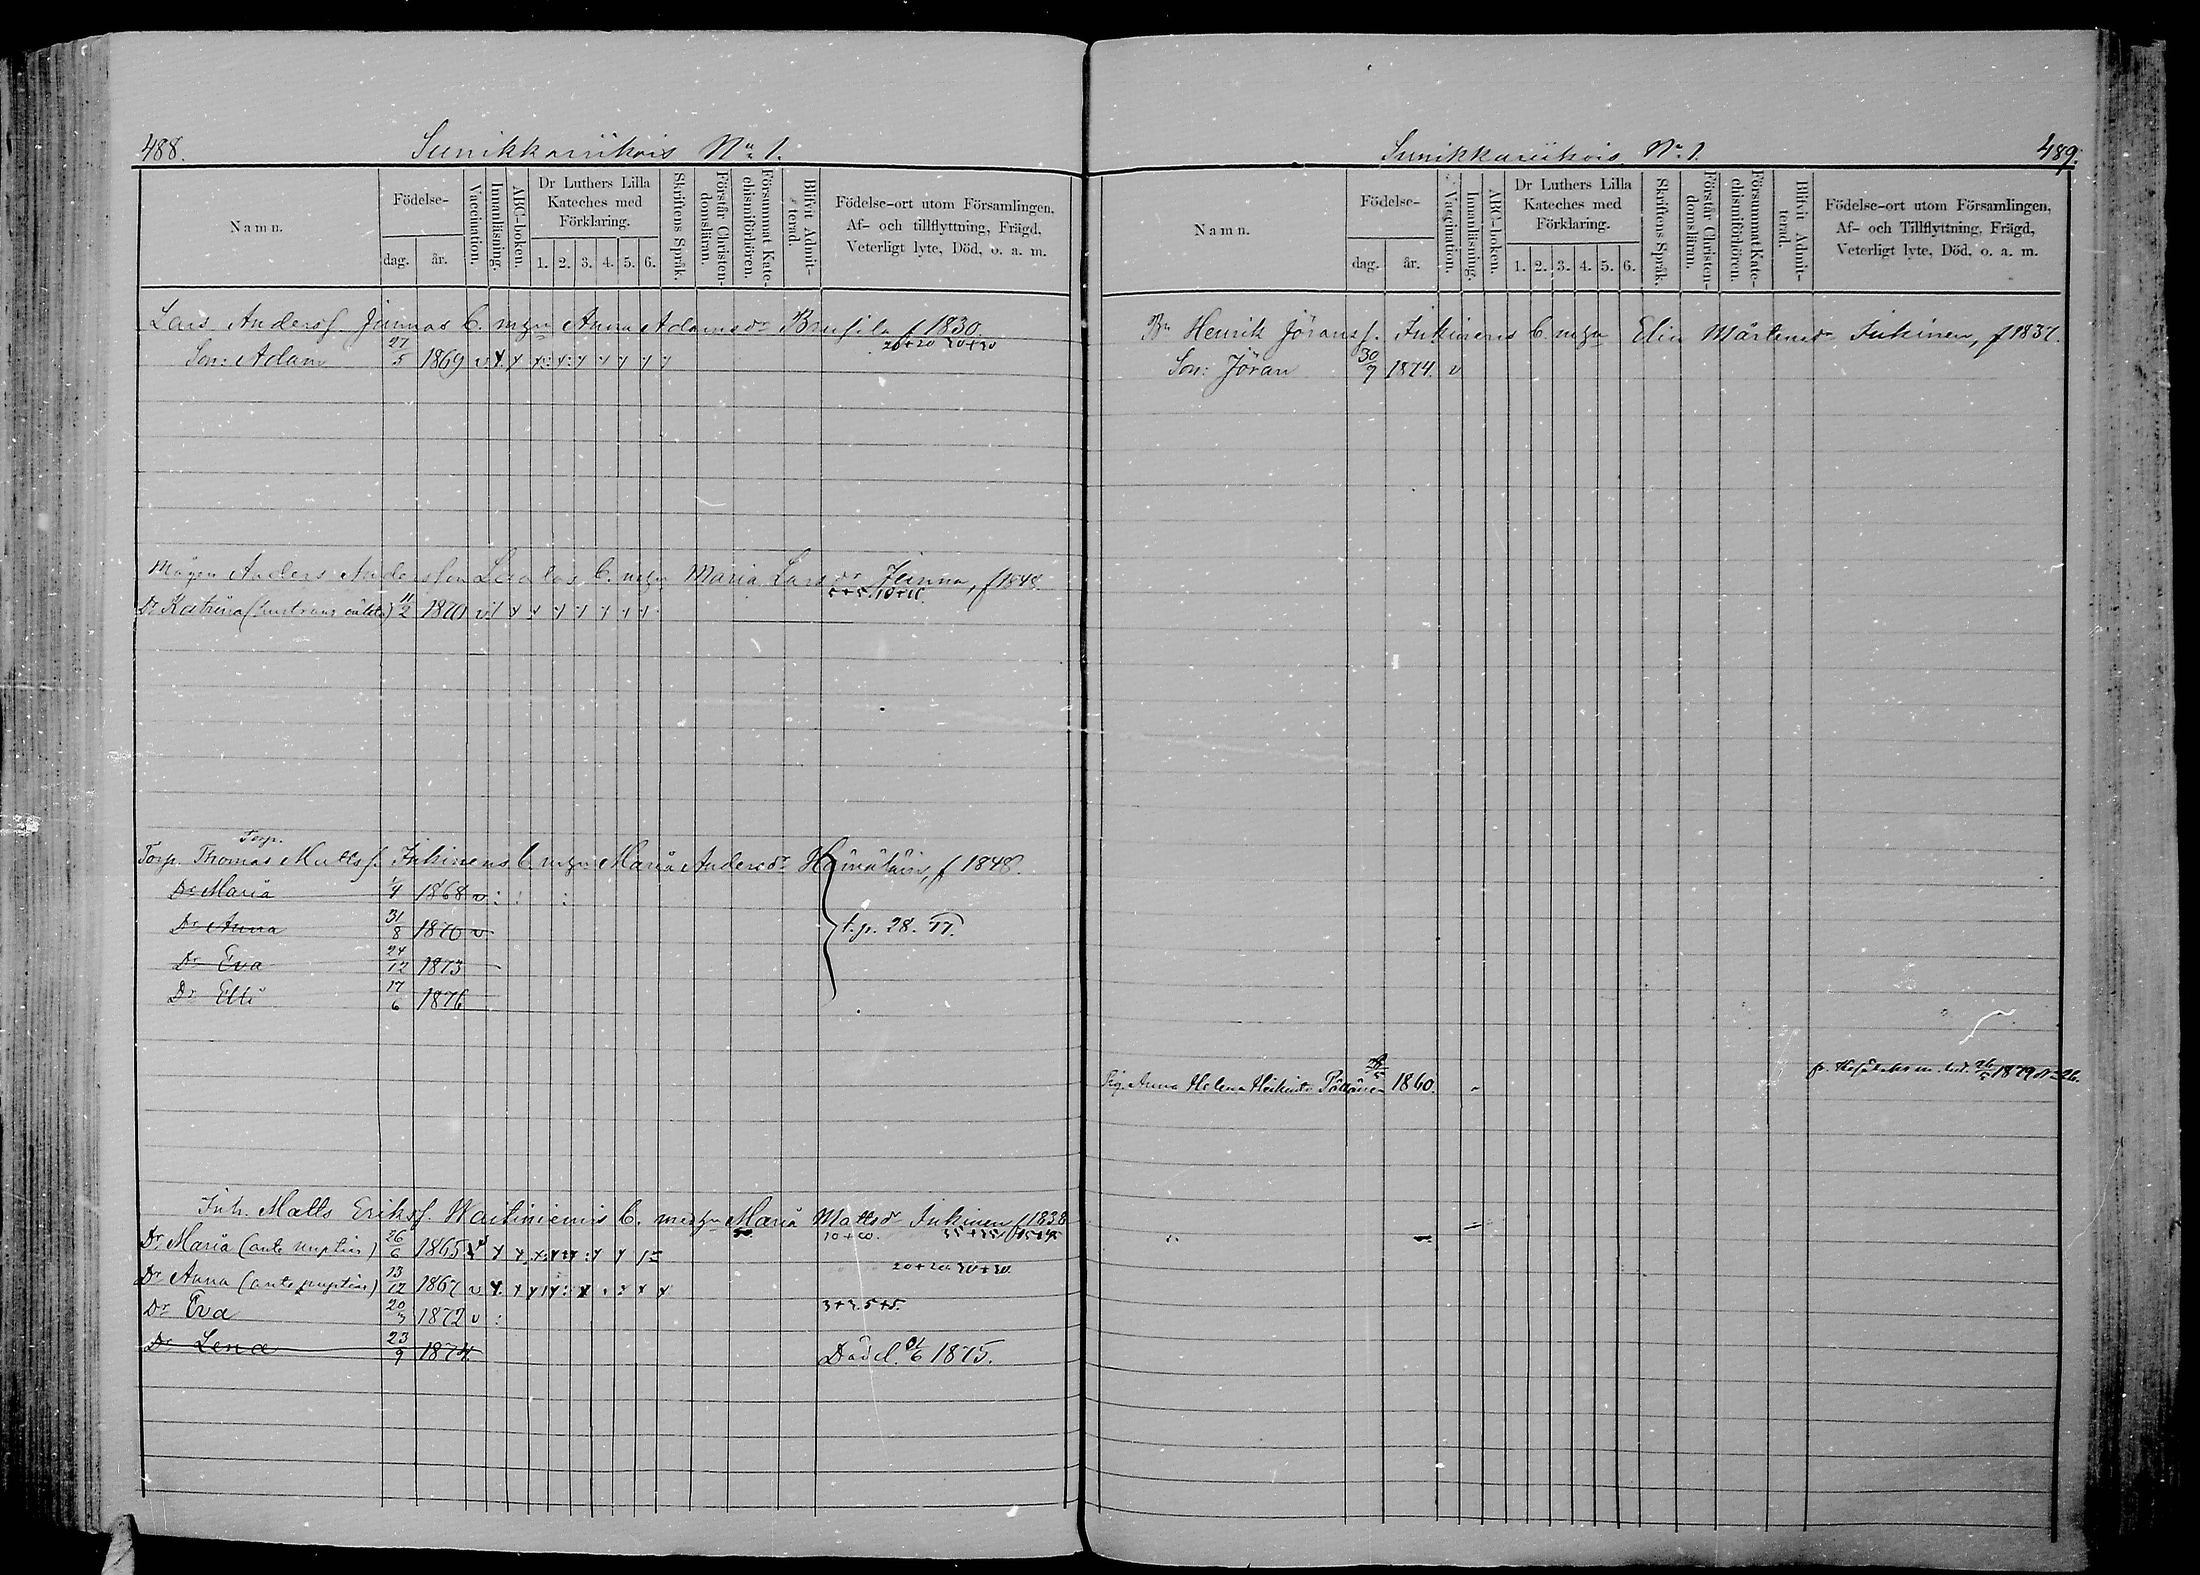 488.
Sunikkariihois No 1.
Namn.
Födelse-
dag.
år.
Vaccination.
Innanläsning.
ABC-boken.
Dr Luthers Lilla
Kateches med
Förklaring.
1. 2. 3. 4. 5. 6.
Skriftens Språk.
Förstår Christen-
domsläran.
Försummat Kate-
chismiförhören.
Blifvit Admit-
terad.
Födelse-ort utom Församlingen,
Af- och tillflyttning, Frägd,
Veterligt lyte, Död, o. a. m.
Lars Andersf. Junnas b. m. hu Anna Adamsdr f 1830.
20+20 30+30
Son: Adam 27/5 1869 v
Mågen Anders Andersson b. m. hu Maria Larsdr Junna, f 1848.
Dr Katrina 11/2 1870 v
Torp.
Torp. Thomas Mattsf. Inkinens b. m. hu Maria Andersdr f 1848.
Dr Maria 1/4 1868 v
Dr Anna 31/8 1870 v t. p. 28. 77.
Dr Eva 24/12 1873
Dr Elli 17/6 1876
Inh. Matts Eriksf. b. med hu Maria Mattsdr Inkinen f 1838
Dr Maria (ante nuptias) 26/6 1865
20+20 30+30
Dr Anna (ante nuptias) 13/12 1867 v
Dr Eva 1872 v 3+3. 5+5.
Dr Lena 23/9 1874. Död d. 1875.
489.
Sunikkariihois No 1.
Namn.
Födelse-
dag.
år.
Vaccination.
Innanläsning.
ABC-boken.
Dr Luthers Lilla
Kateches med
Förklaring.
1. 2. 3. 4. 5. 6.
Skriftens Språk.
Förstår Christen-
domsläran.
Försummat Kate-
chismiförhören.
Blifvit Admit-
terad.
Födelse-ort utom Församlingen,
Af- och Tillflyttning, Frägd,
Veterligt lyte, Död, o. a. m.
Bn Henrik Jöransf. Inkinens b. m. hu Elin Mårtensdr Inkinen, f 1837.
Son: Jöran 30/7 1874. v
Pig. Anna Helena Heikindr 1860. 1879 No 26.